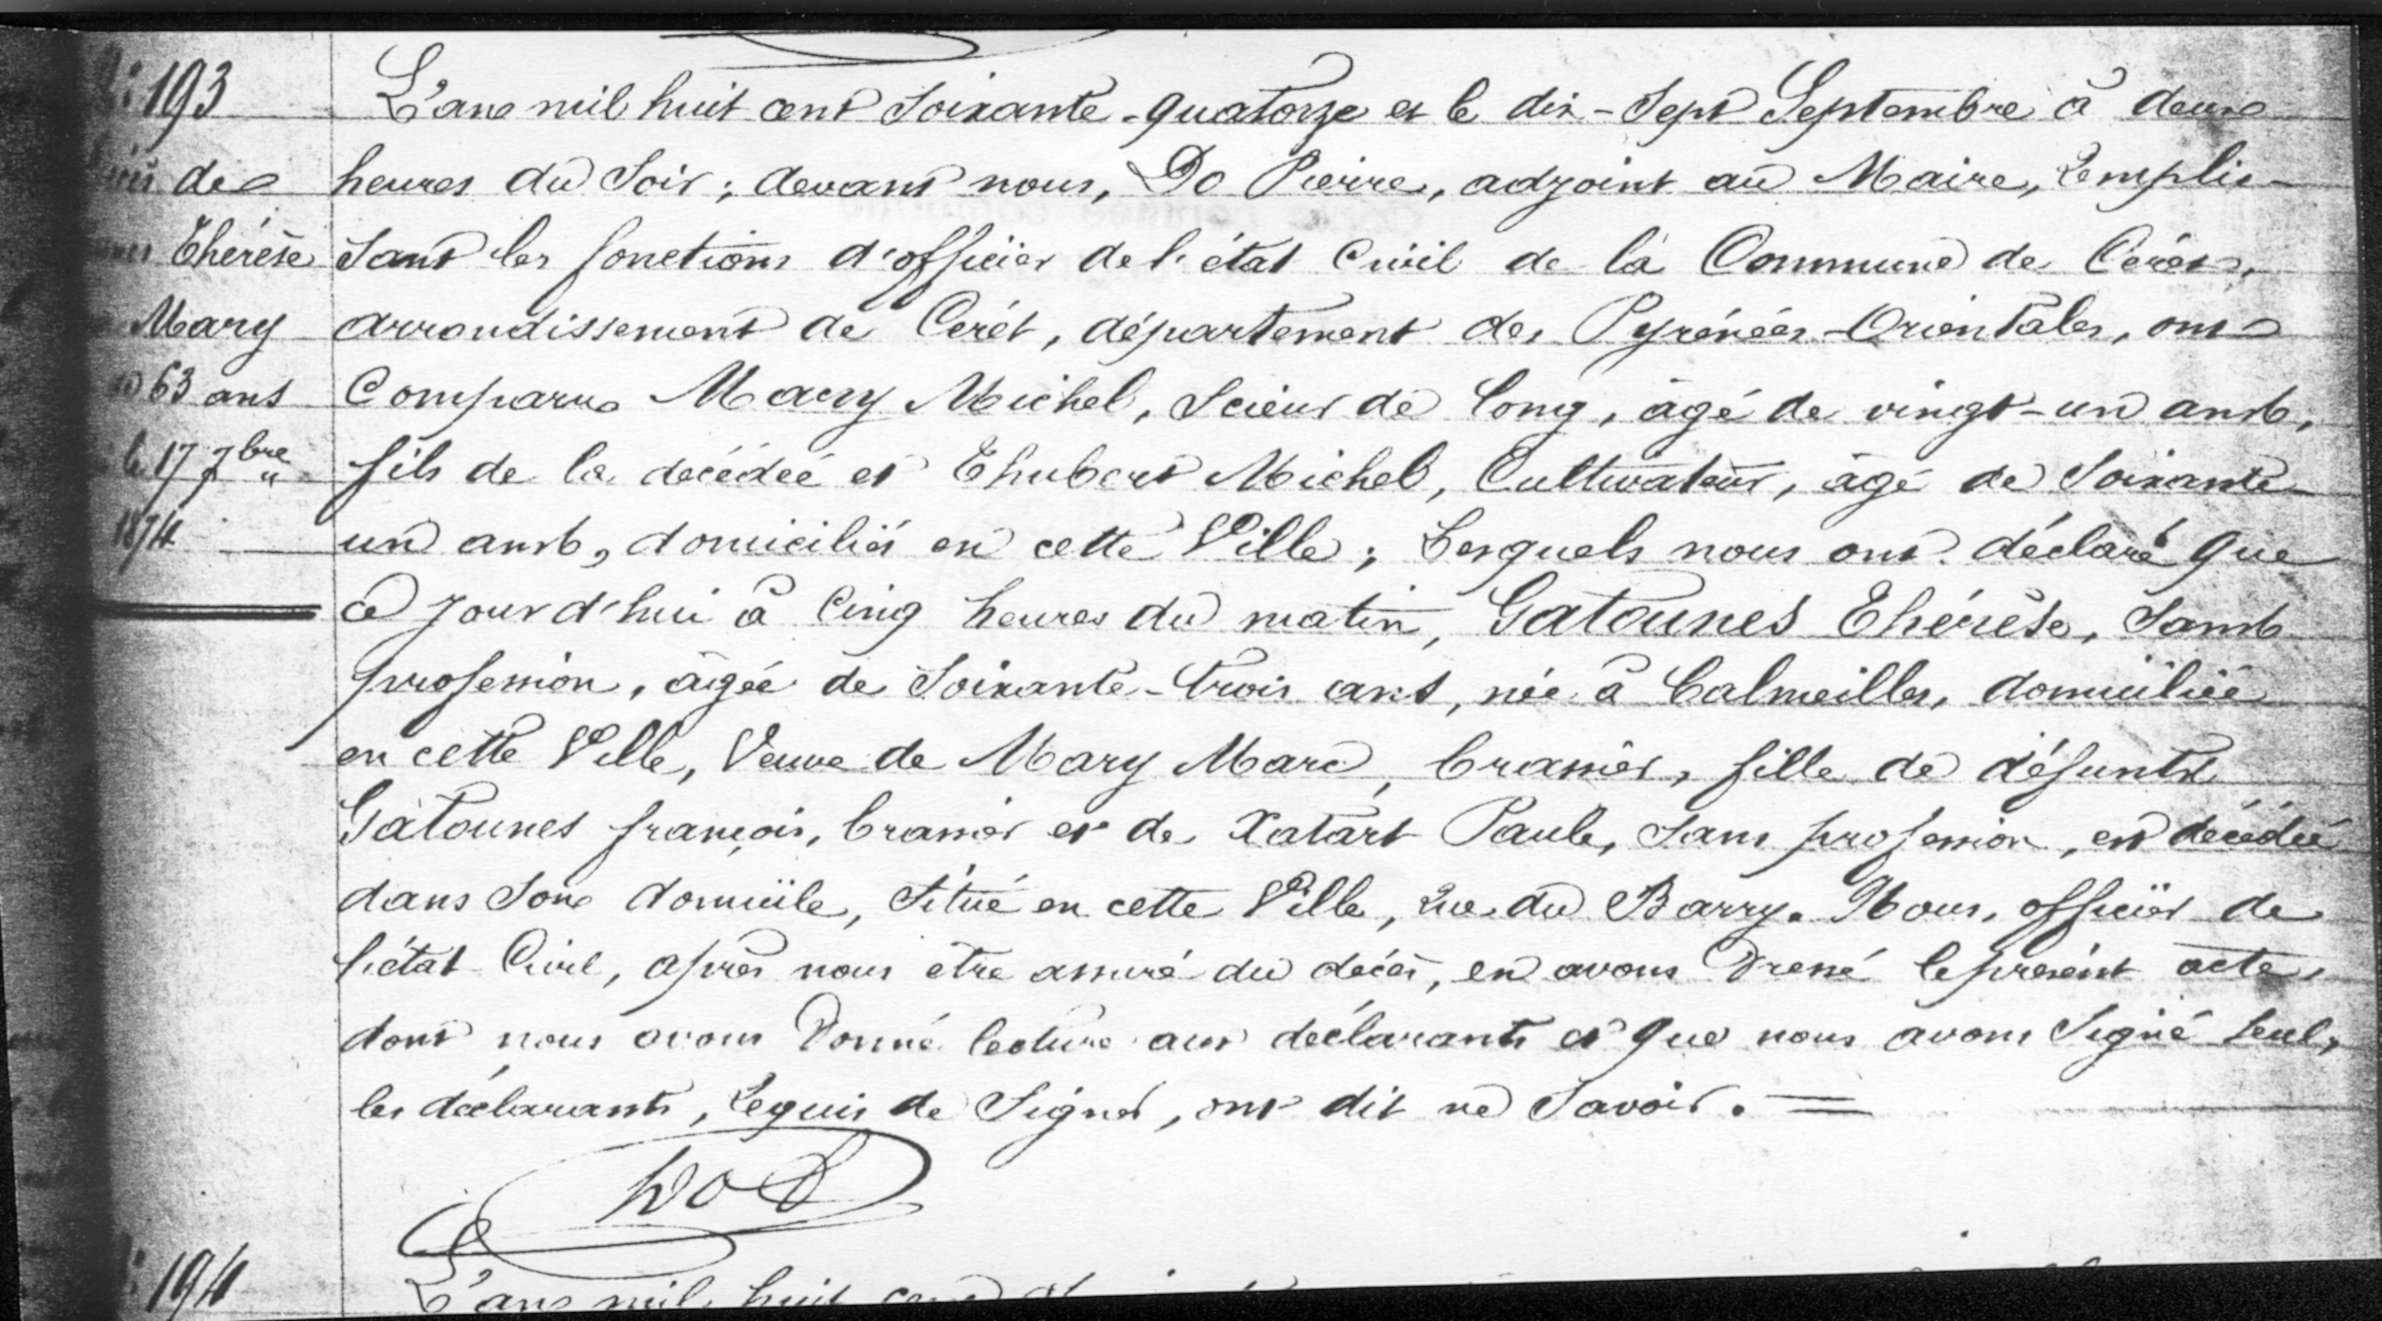 193
de
Thérèse
Mary
63 ans
le 17 7bre
1874
L'an mil huit cent soixante-quatorze et le dix-sept Septembre à deux
heures du soir; devant nous, Do Pierre, adjoint au Maire, remplis-
sant les fonctions d'officier de l'état Civil de la Commune de Céret,
arrondissement de Céret, département des Pyrénées-Orientales, ont
Comparu Mary Michel, Scieur de long, âgé de vingt-un ans,
fils de la décédée et Thubert Michel, Cultivateur, âgé de Soixante-
un ans, domiciliés en cette Ville; Lesquels nous ont déclaré que
ce jourd'hui à Cinq heures du matin, Gatounes Thérèse, Sans
profession, âgée de Soixante-trois ans, née à Calmeilles, domiciliée
en cette Ville, Veuve de Mary Marc, brassier, fille de défunts
Gatounes françois, brassier et de Xatart Paule, sans profession, est décédée
dans son domicile, situé en cette Ville, rue du Barry. Nous, officier de
l'état Civil, après nous être assuré du décès, en avons Dressé le présent acte,
dont nous avons Donné lecture aux déclarants et que nous avons Signé seul,
les déclarants, requis de Signer, ont dit ne Savoir.
Do
194
L'an mil huit cent